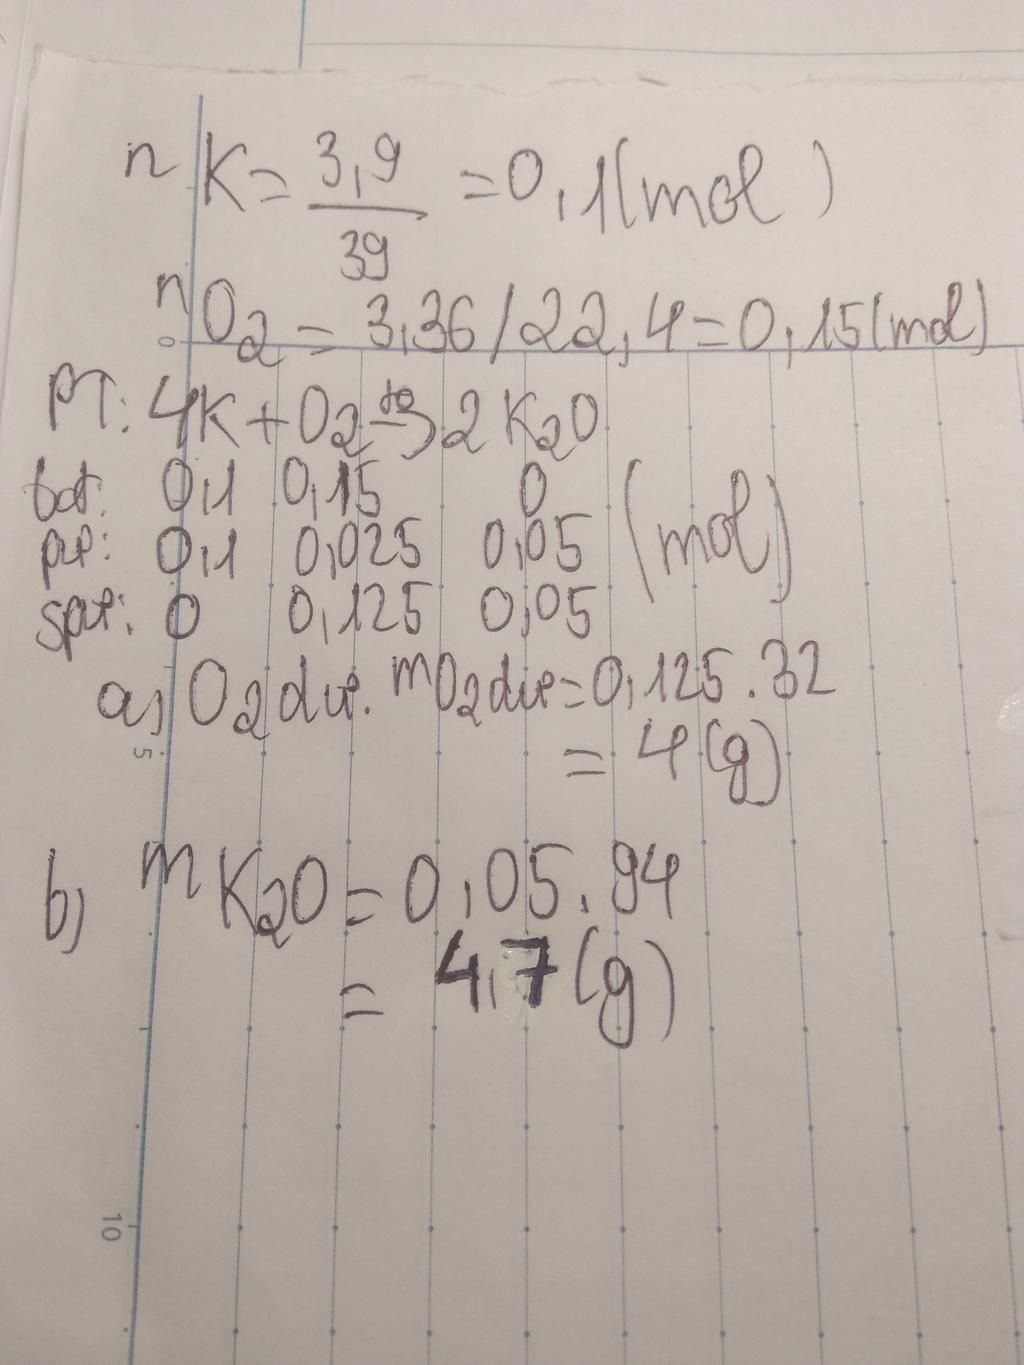 nK = 3,9/39 = 0,1(mol)
nO2 = 3,36/22,4 = 0,15(mol)
0
PT: 4K + O2 t0→ 2K2O
bđ: 0,1 0,15 0
pư: 0,1 0,025 0,05 (mol)
spư: 0 0,125 0,05
a, O2 dư. mO2 dư = 0,125.32
= 4(g)
5
b, mK2O = 0,05.94
= 4,7(g)
10